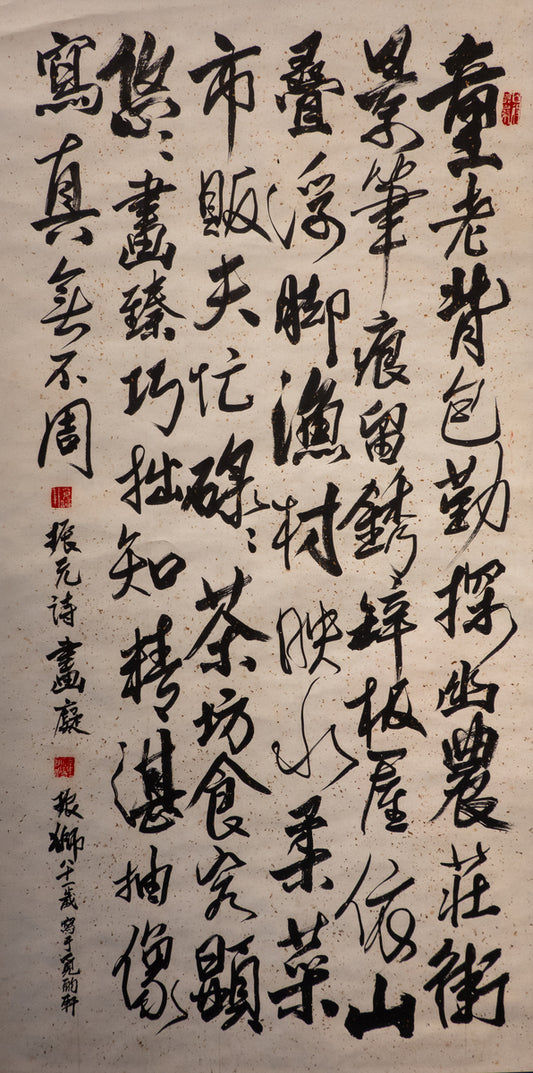 童老背包勤探幽農莊街
景筆痕留鏽鋅板屋依山
疊浮脚漁村映水柔菜
市販夫忙碌〻茶坊食客顯
悠〻畫臻巧拙知精湛抽像
寫真無不周
振元詩 畫癡
振獅八十一歲寫于 軒